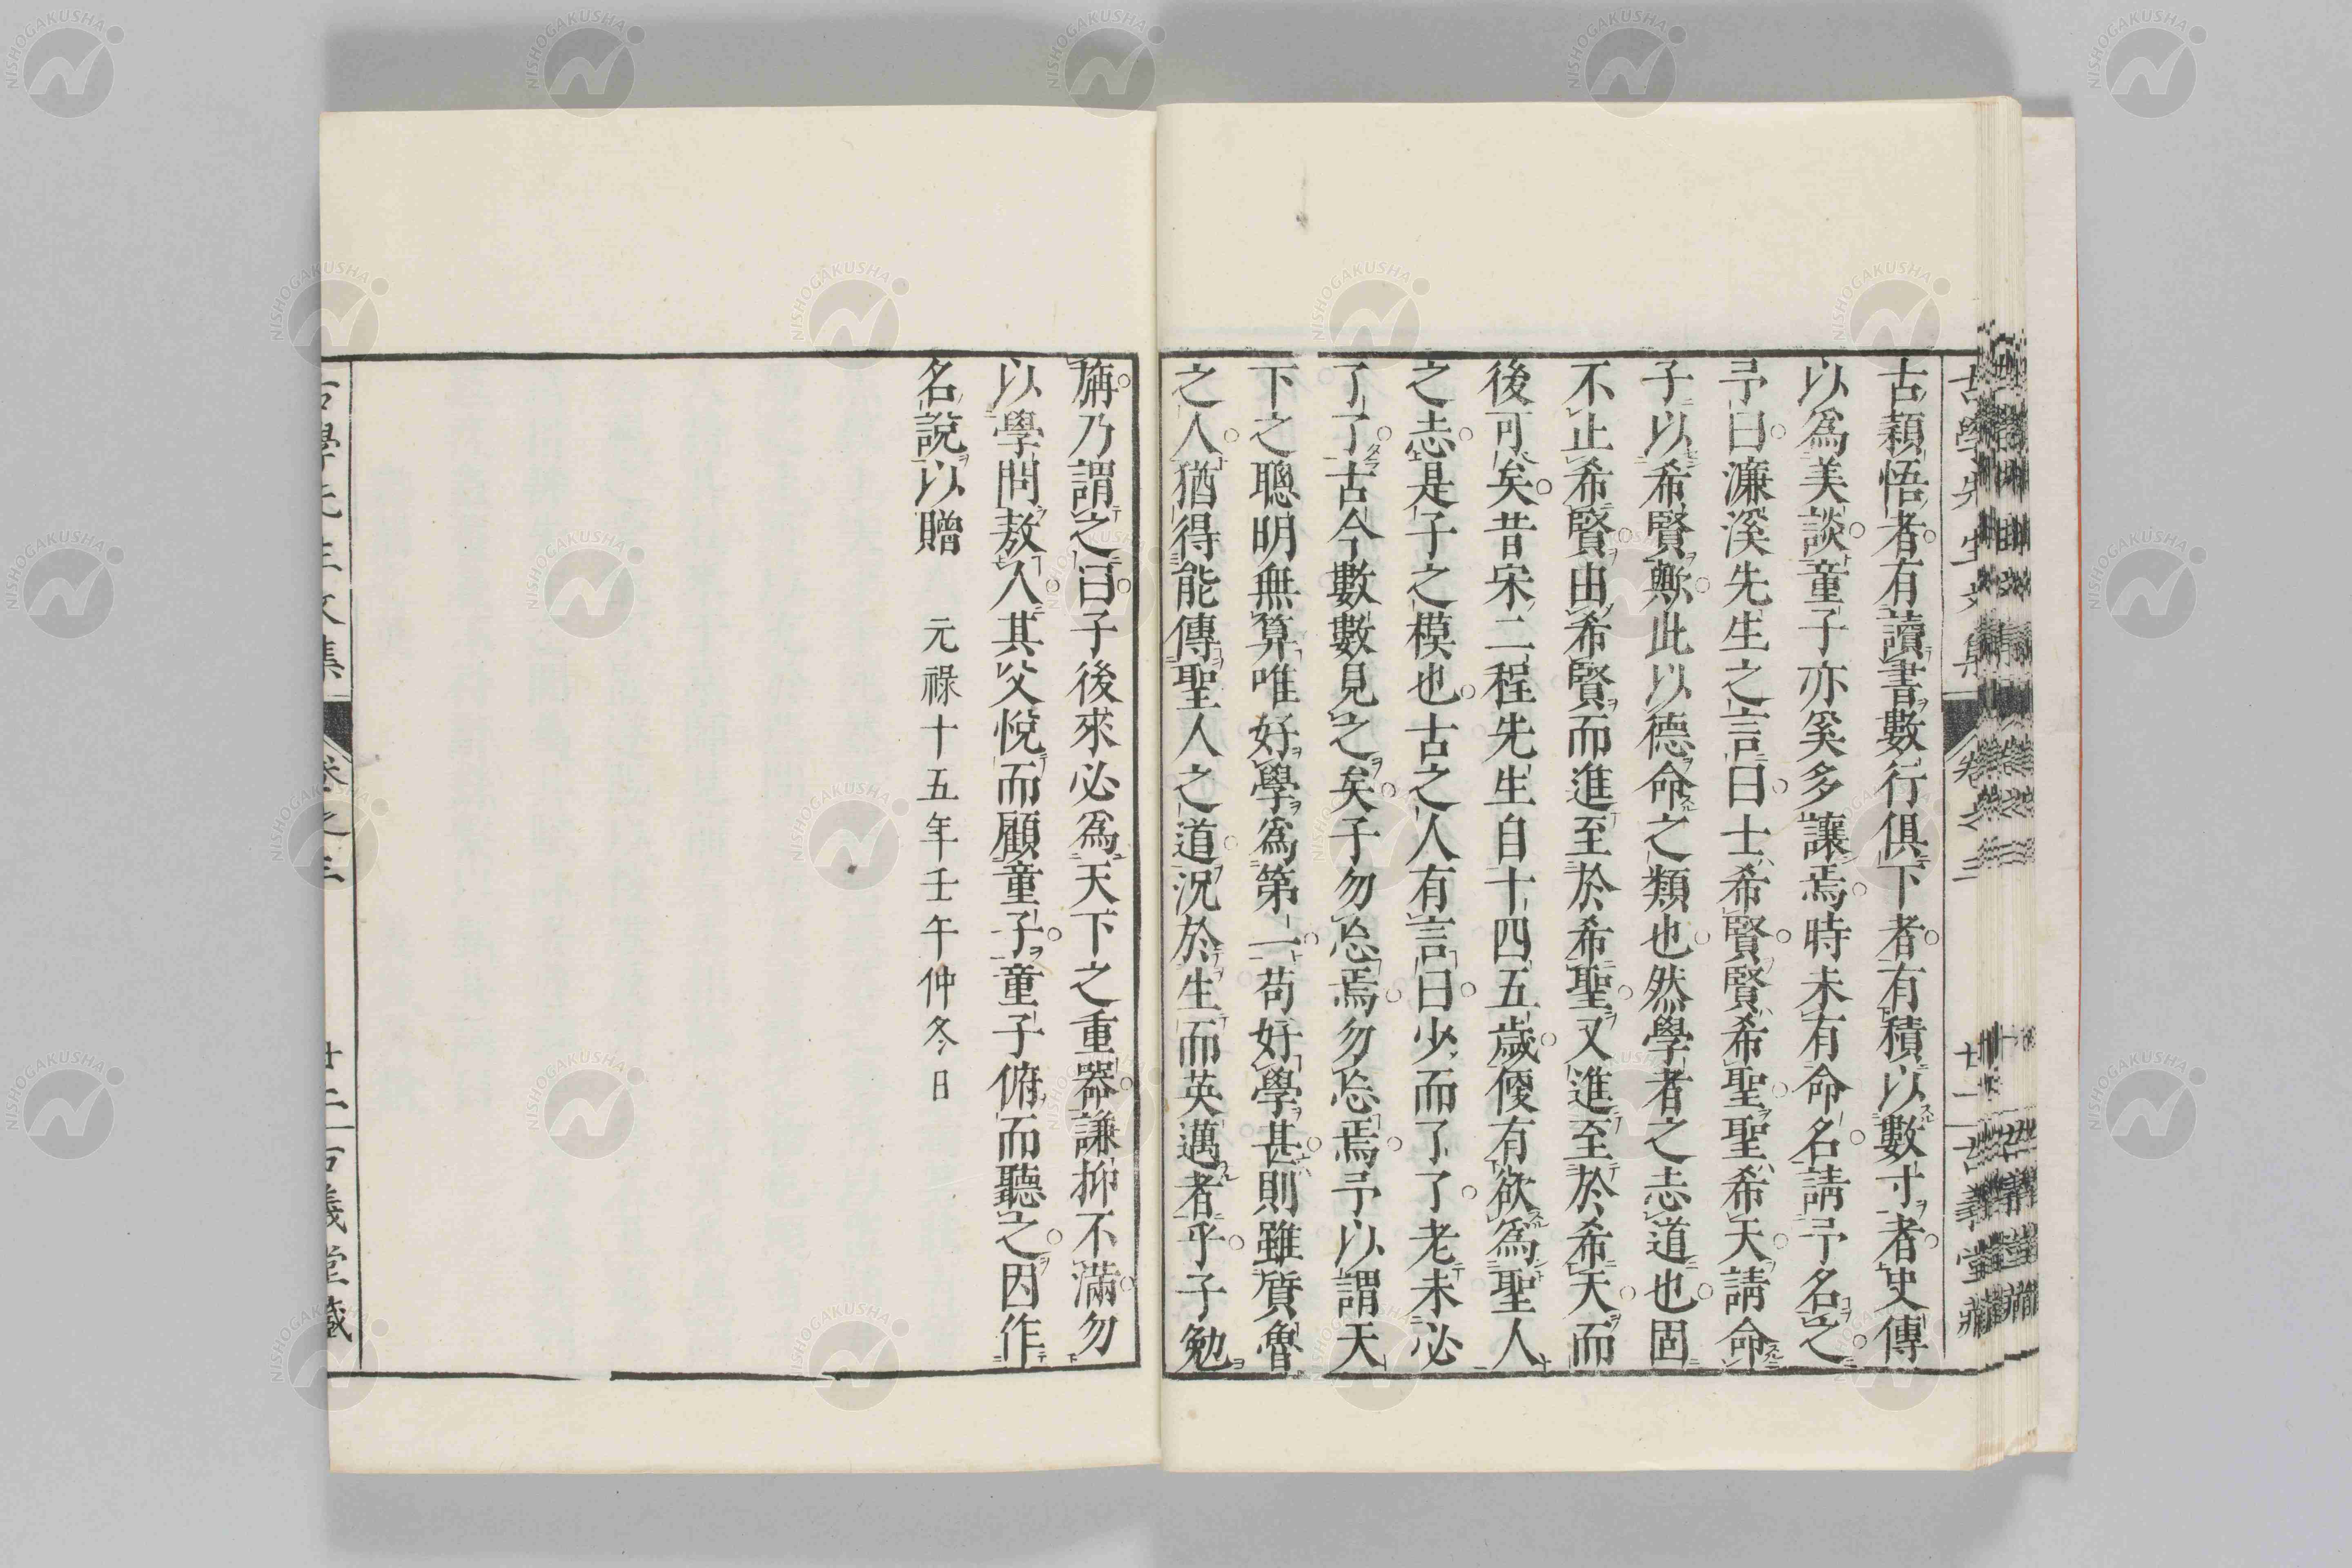 古學先生文集 卷之三 十二 古義堂藏
古穎悟者有讀書數行俱下者有積以數寸者史傳
以爲美談童子亦奚多讓焉時未有命名請予名之
予曰濂溪先生之言曰士希賢賢希聖聖希天請命
子以希賢歟此以德命之類也然學者之志道也固
不止希賢由希賢而進至於希聖又進至於希天而
後可矣昔宋二程先生自十四五歲便有欲爲聖人
之志是子之模也古之人有言曰少而了了老未必
了了古今數數見之矣子勿忘焉勿忘焉予以謂天
下之聰明無算唯好學爲第一苟好學甚則雖質魯
之人猶得能傳聖人之道況於生而英邁者乎子勉
旃乃謂之曰子後來必爲天下之重器謙抑不滿勿
以學問敖人其父悅而顧童子童子俯而聽之因作
名說以贈 元祿十五年壬午仲冬日
古學先生文集 卷之三 古義堂藏
NISHOGAKUSHA